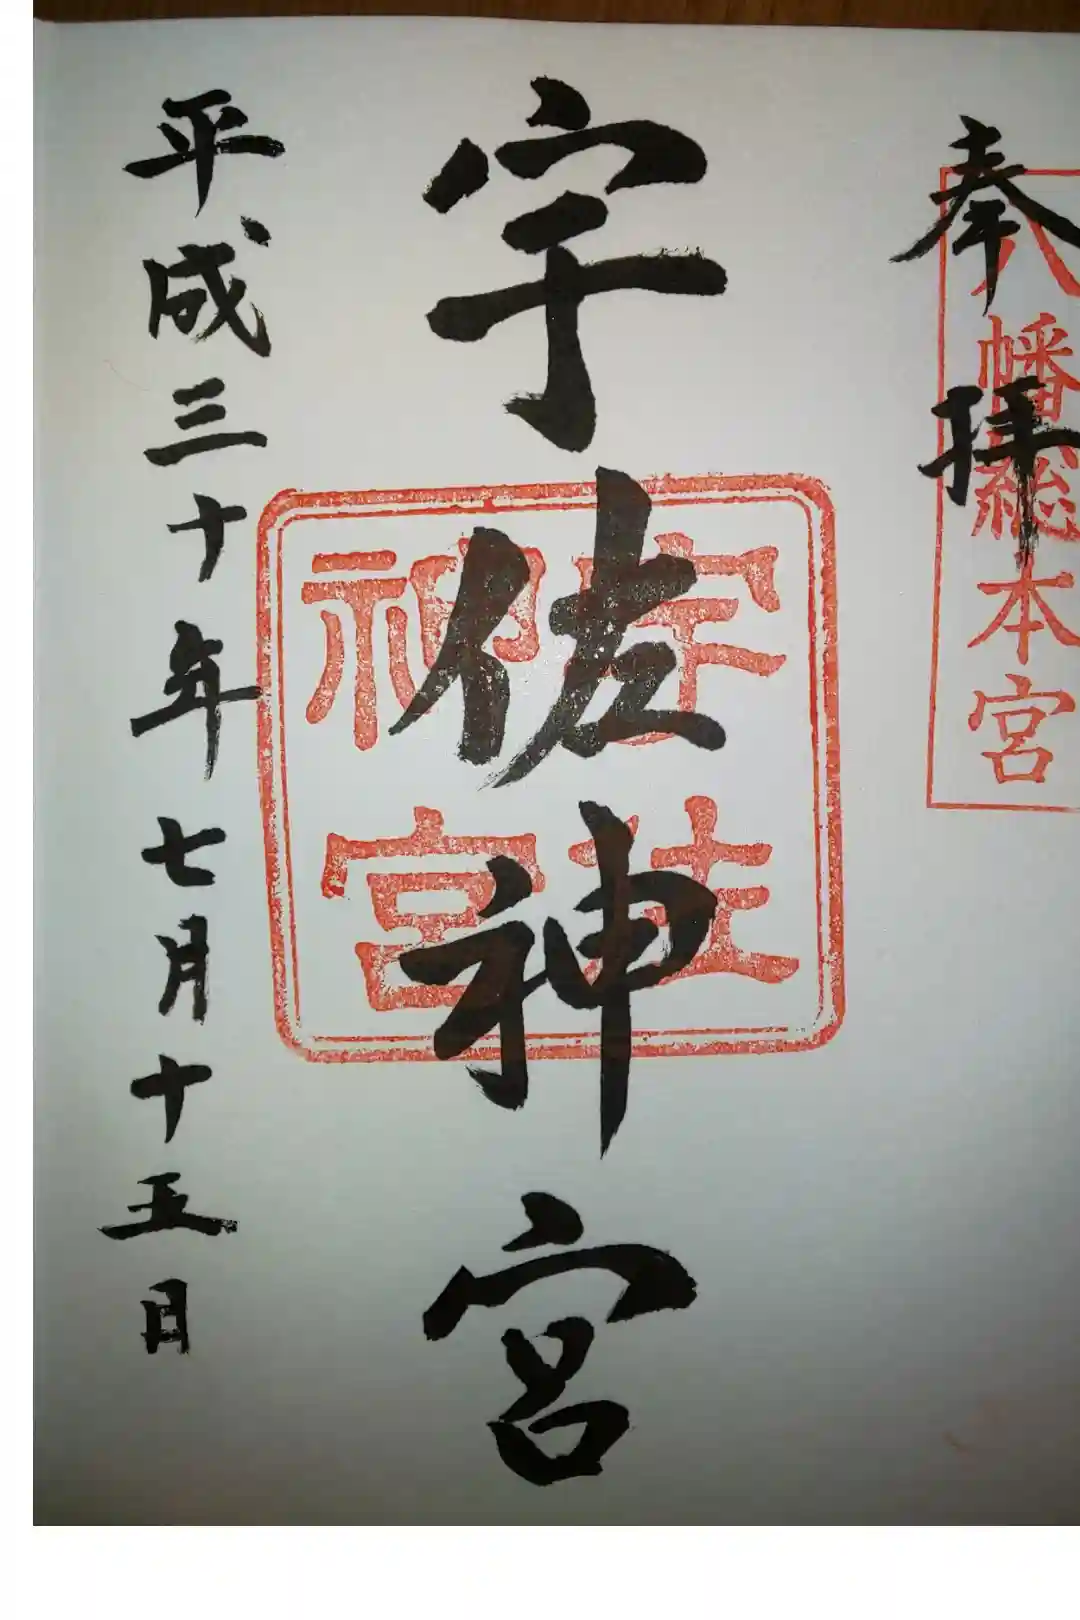 奉拝
八幡総本宮
宇佐神宮
宇佐
神宮
平成三十年七月十五日